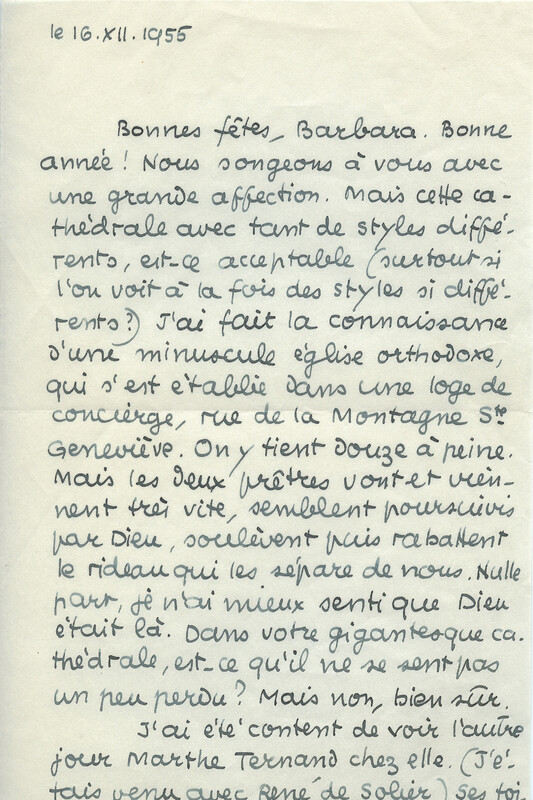 le 16.XII.1955
Bonnes fêtes, Barbara. Bonne
année ! Nous songeons à vous avec
une grande affection. Mais cette ca-
thédrale avec tant de styles diffé-
rents, est-ce acceptable (surtout si
l'on voit à la fois des styles si diffé-
rents ?) J'ai fait la connaissance
d'une minuscule église orthodoxe,
qui s'est établie dans une loge de
concierge, rue de la Montagne Ste
Geneviève. On y tient douze à peine.
Mais les deux prêtres vont et vien-
nent très vite, semblent poursuivis
par Dieu, soulèvent puis rabattent
le rideau qui les sépare de nous. Nulle
part, je n'ai mieux senti que Dieu
était là. Dans votre gigantesque ca-
thédrale, est-ce qu'il ne se sent pas
un peu perdu ? Mais non, bien sûr.
J'ai été content de voir l'autre
jour Marthe Ternand chez elle. (J'é-
tais venu avec René de Solier) Ses toi-